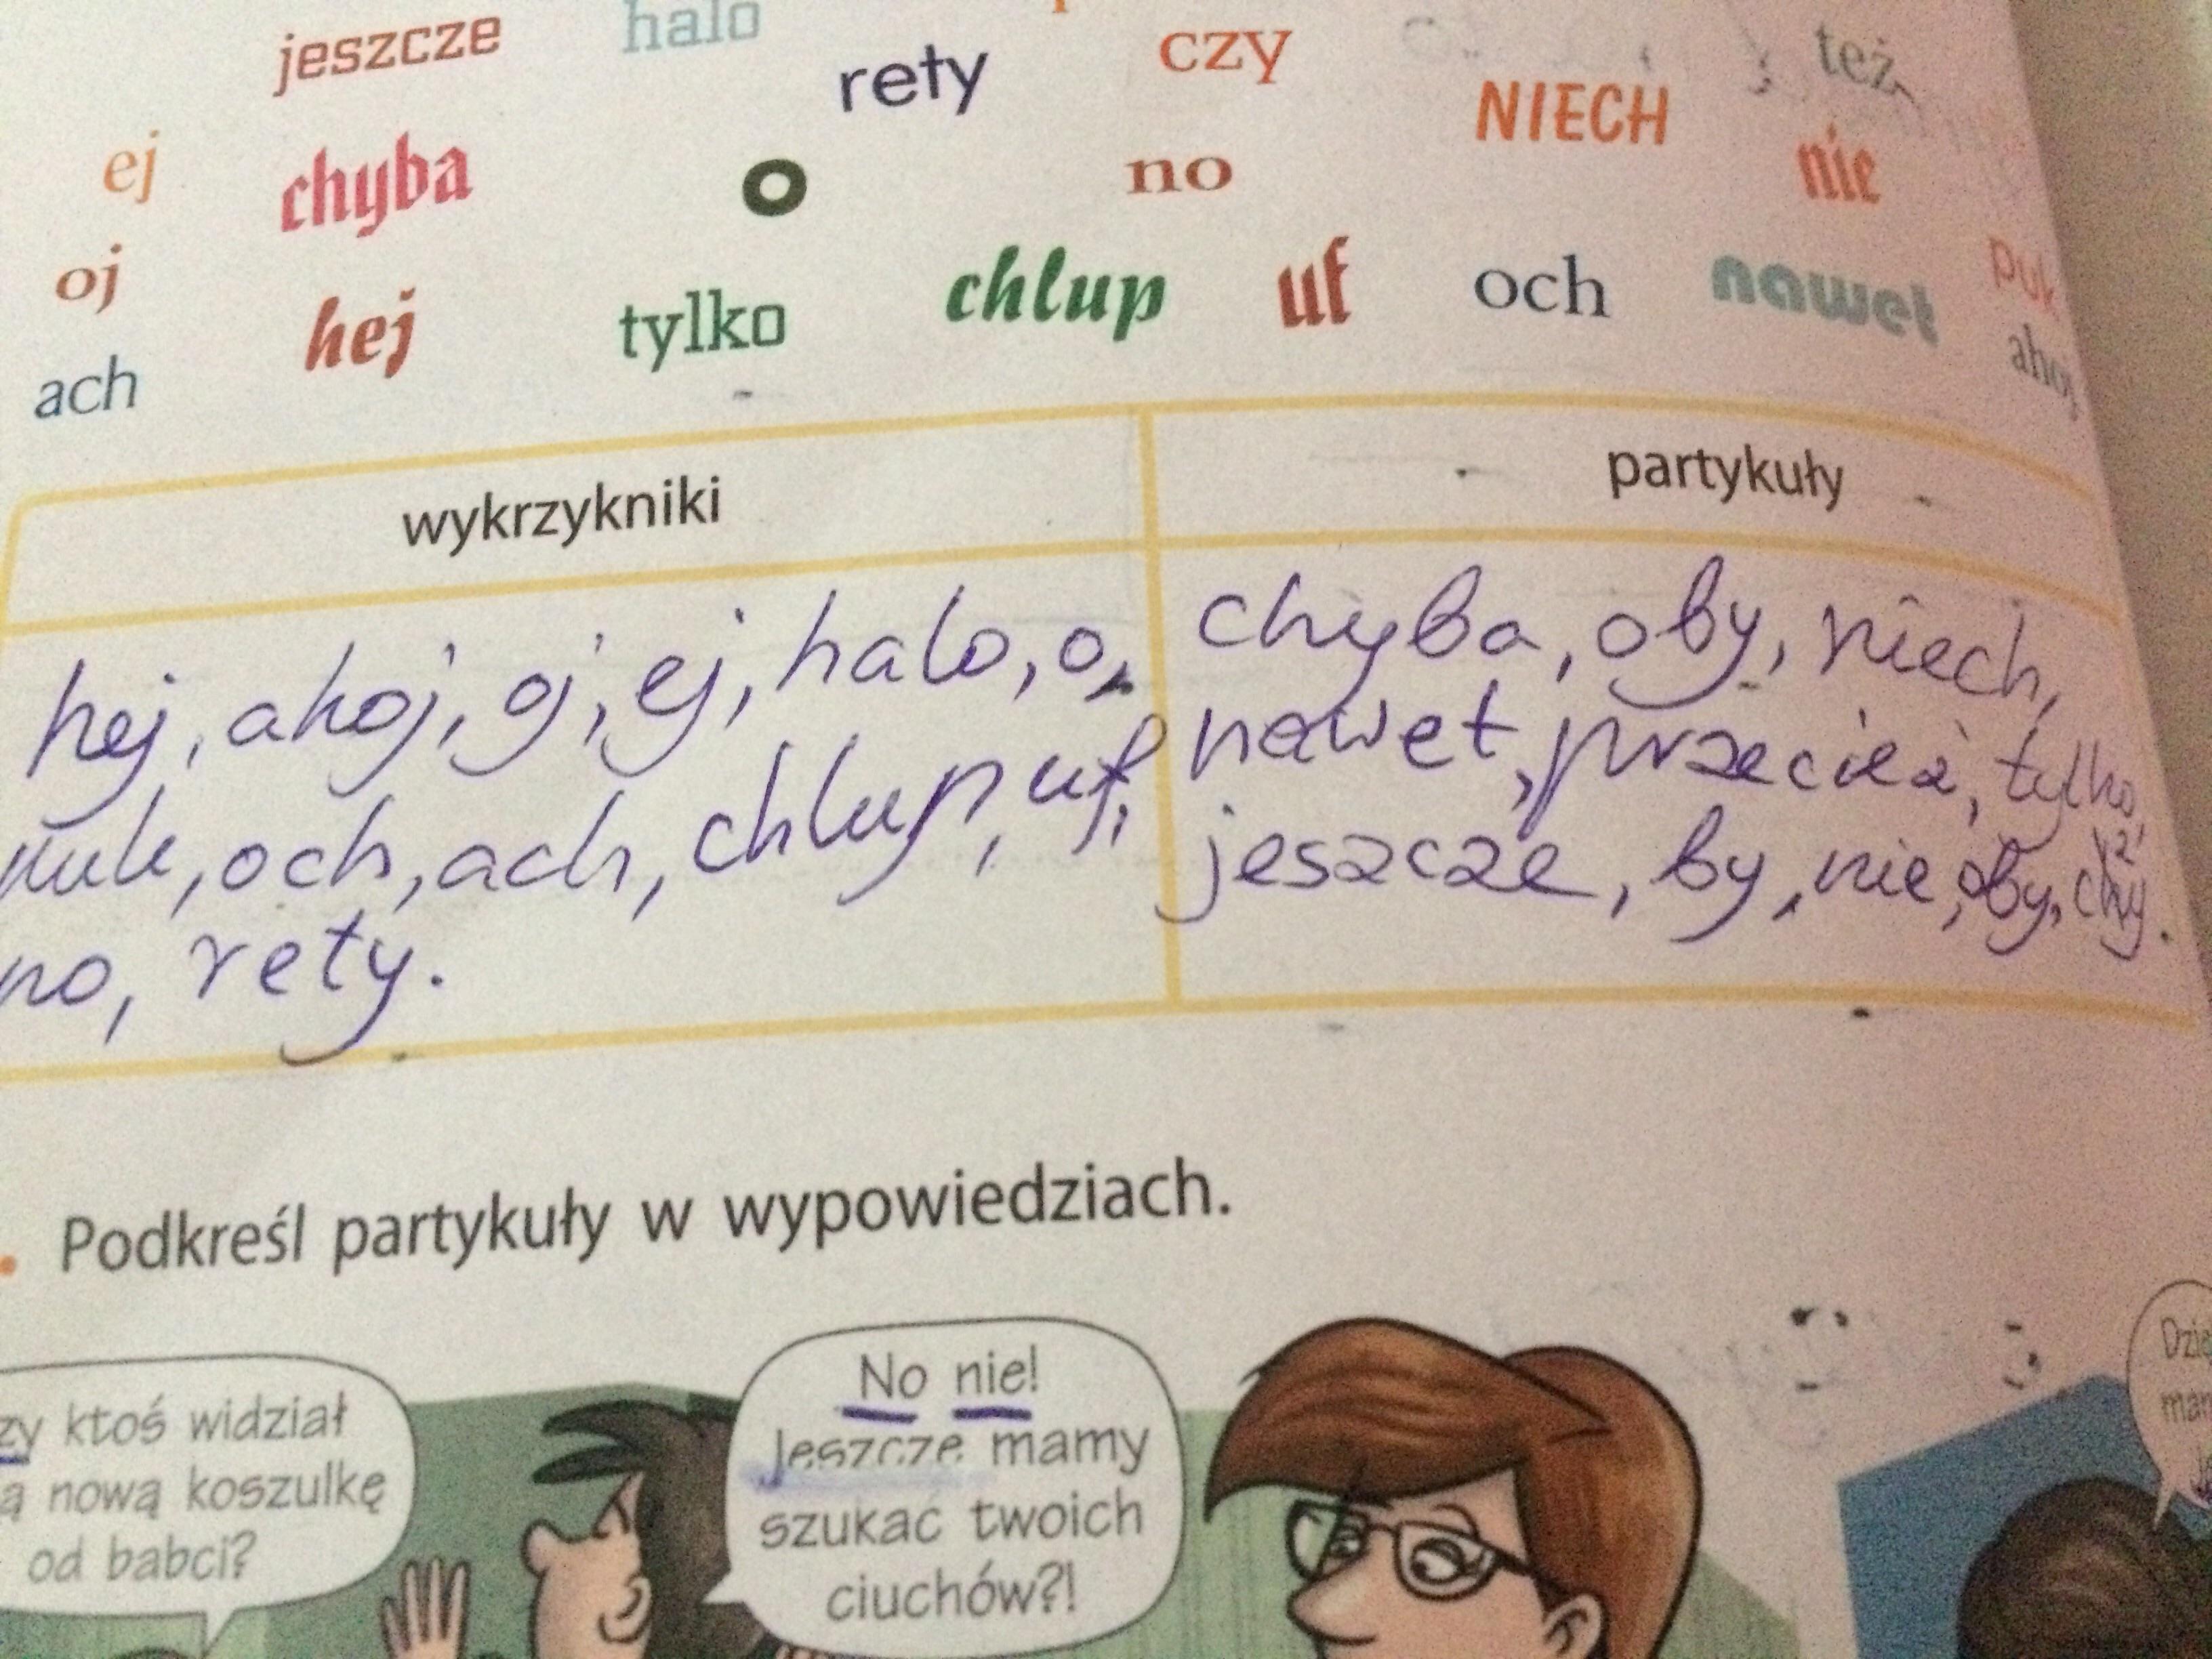 jeszcze halo rety czy też
ej chyba o no NIECH nie
oj hej tylko chlup uf och nawet puk
ach ahoj
wykrzykniki partykuły
hej, ahoj, oj, ej, halo, o,
puk, och, ach, chlup, uf,
no, rety.
chyba, oby, niech,
nawet, przecież, tylko,
jeszcze, by, nie, oby,
Podkreśl partykuły w wypowiedziach.
zy ktoś widział
ą nową koszulkę
od babci?
No nie!
Jeszcze mamy
szukać twoich
ciuchów?!